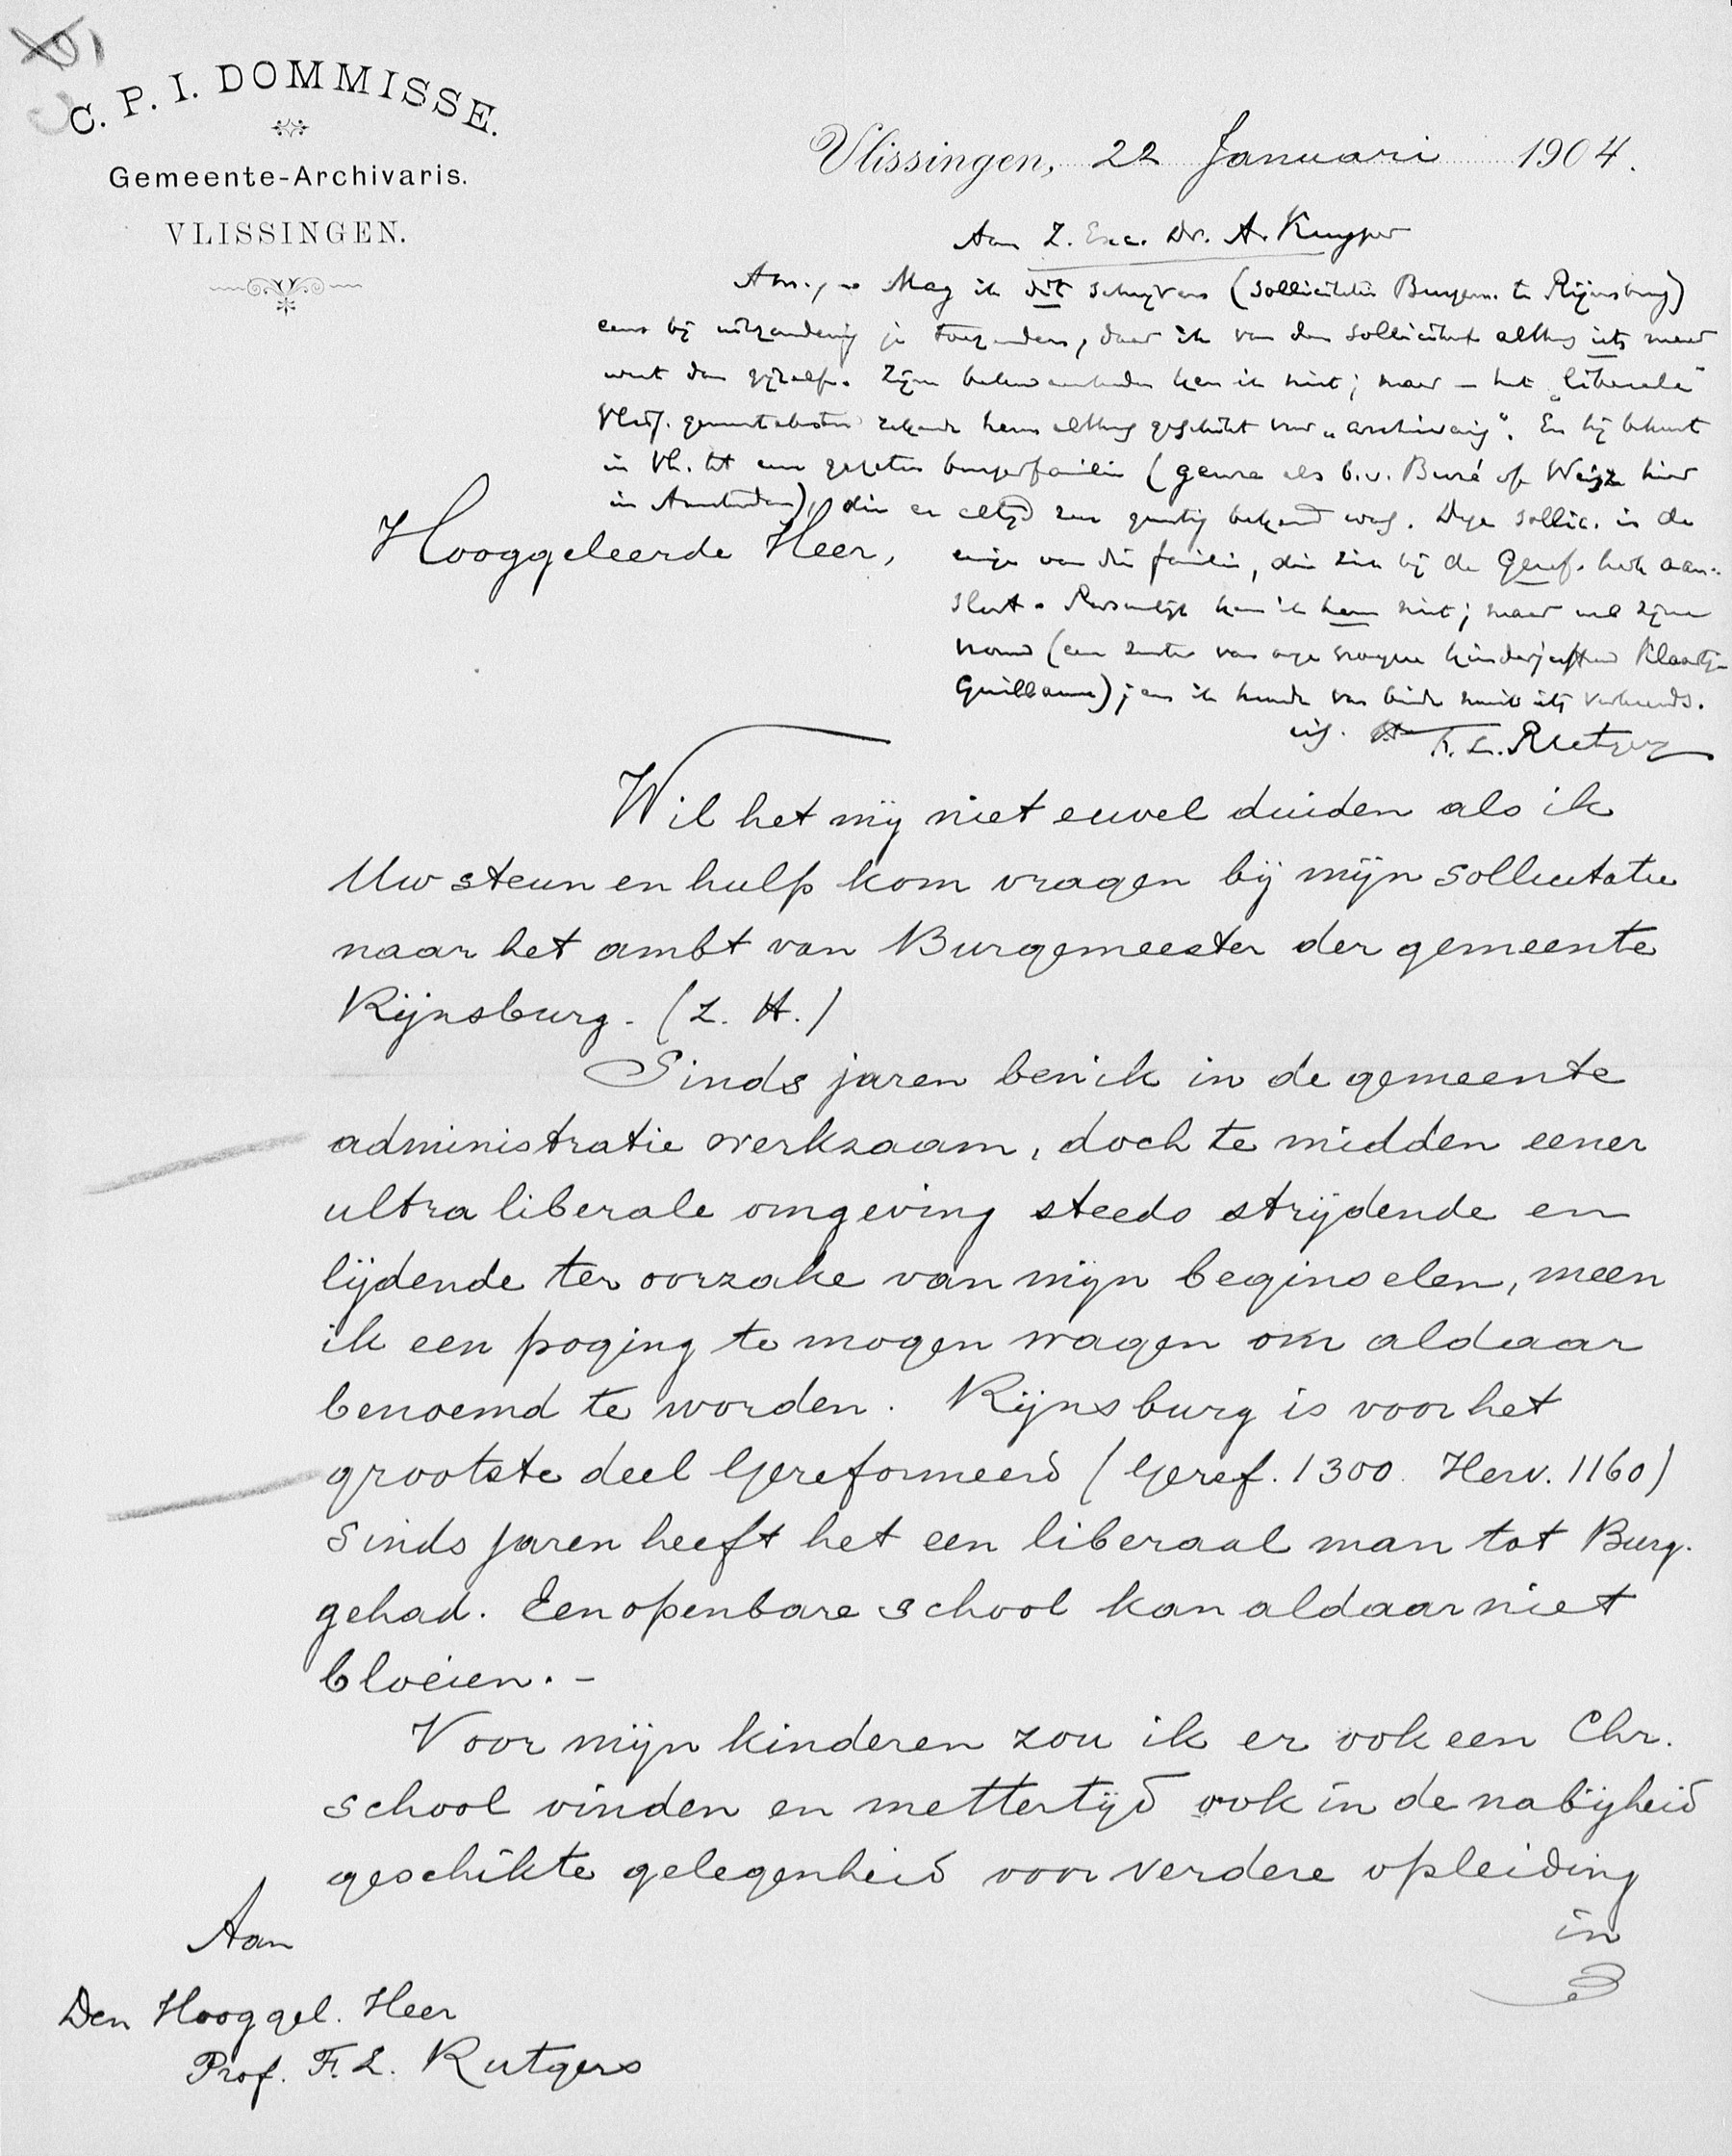 C. P. I. DOMMISSE.
Gemeente-Archivaris.
VLISSINGEN.
Vlissingen, 22 Januari 1904.
Aan Z. Exc. Dr. A. Kuyper
Am., Mag ik dit schrijven (sollicitatie Burgem. te Rijnsburg)
eens bij uitzondering je toezenden, daar ik van den sollicitant althans iets meer
weet dan gijzelf. Zijn bekwaamheden ken ik niet; maar – het "liberale"
Vliss. gemeentebestuur rekende hem althans geschikt voor "archivaris". En hij behoort
in Vl. tot een gezeten burgerfamilie (genre als b.v. Buré of Weisz hier
in Amsterdam), die er altijd zeer gunstig bekend was. Deze sollic. is de
enige van die familie, die zich bij de Geref. kerk aan-
sloot. Persoonlijk ken ik hem niet; maar wel zijne
vrouw (een zuster van onze vroegere kinderjuffrouw Klaartje
Guillaume); en ik hoorde van beide nooit iets verkeerds.
F. L. Rutgers
Hooggeleerde Heer,
Wil het mij niet euvel duiden als ik
Uw steun en hulp kom vragen bij mijn sollicitatie
naar het ambt van Burgemeester der gemeente
Rijnsburg. (Z. H.)
Sinds jaren ben ik in de gemeente
administratie werkzaam, doch te midden eener
ultra liberale omgeving steeds strijdende en
lijdende ter oorzake van mijn beginselen, meen
ik een poging te mogen wagen om aldaar
benoemd te worden. Rijnsburg is voor het
grootste deel Gereformeerd (Geref. 1300. Herv. 1160)
Sinds jaren heeft het een liberaal man tot Burg.
gehad. Een openbare school kan aldaar niet
bloeien. –
Voor mijn kinderen zou ik er ook een Chr.
school vinden en mettertijd ook in de nabijheid
geschikte gelegenheid voor verdere opleiding
in
Aan
Den Hooggel. Heer
Prof. F. L. Rutgers